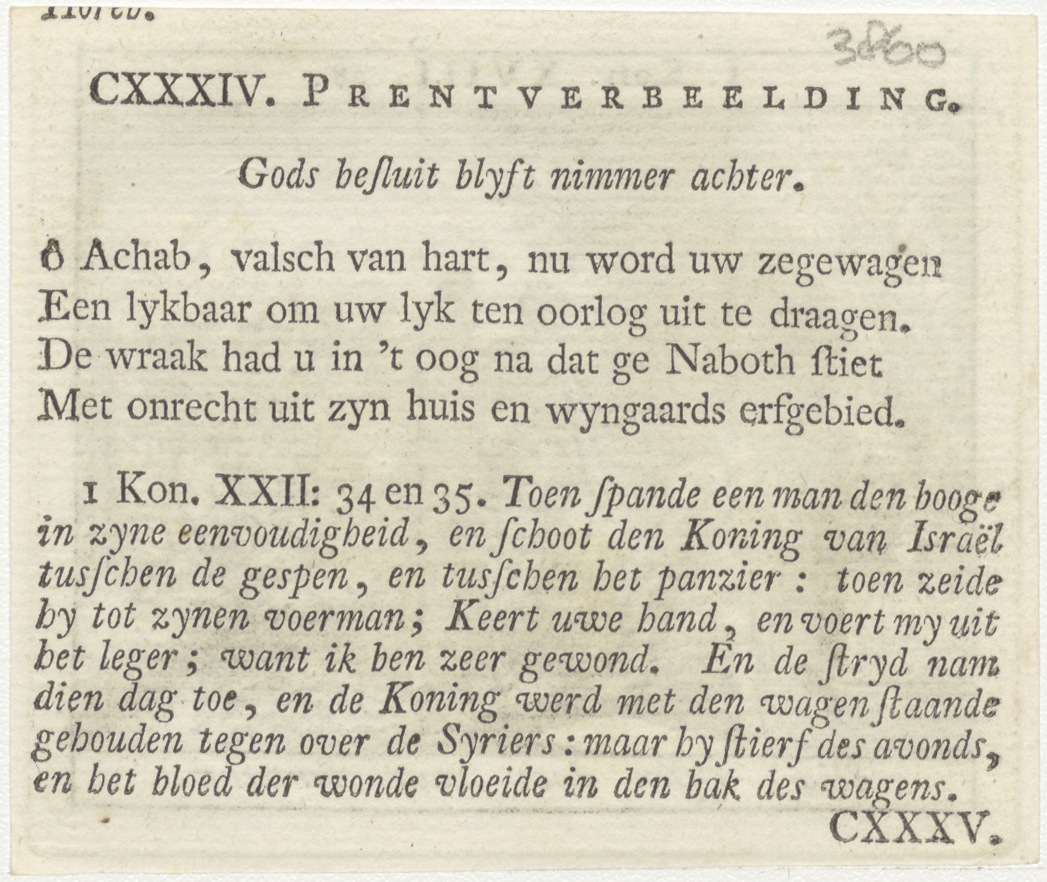 3860
CXXXIV. PRENTVERBEELDING.
Gods beſluit blyft nimmer achter.
ô Achab, valsch van hart, nu word uw zegewagen
Een lykbaar om uw lyk ten oorlog uit te draagen.
De wraak had u in 't oog na dat ge Naboth ſtiet
Met onrecht uit zyn huis en wyngaards erfgebied.
1 Kon. XXII: 34 en 35. Toen ſpande een man den booge
in zyne eenvoudigheid, en ſchoot den Koning van Israël
tusſchen de gespen, en tusſchen het panzier : toen zeide
hy tot zynen voerman; Keert uwe hand, en voert my uit
het leger; want ik ben zeer gewond. En de ſtryd nam
dien dag toe, en de Koning werd met den wagen ſtaande
gehouden tegen over de Syriers : maar hy ſtierf des avonds,
en het bloed der wonde vloeide in den bak des wagens.
CXXXV.